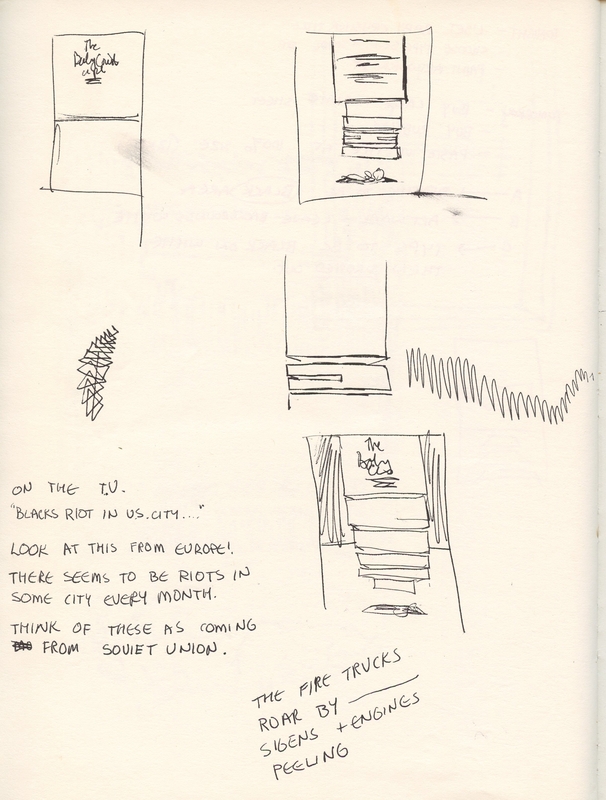 The
Daily
The
ON THE T.V.
"BLACKS RIOT IN US.CITY...."
LOOK AT THIS FROM EUROPE!.
THERE SEEMS TO BE RIOTS IN
SOME CITY EVERY MONTH.
THINK OF THESE AS COMING
FROM SOVIET UNION.
THE FIRE TRUCKS
ROAR BY
SIGENS + ENGINES
PEELING